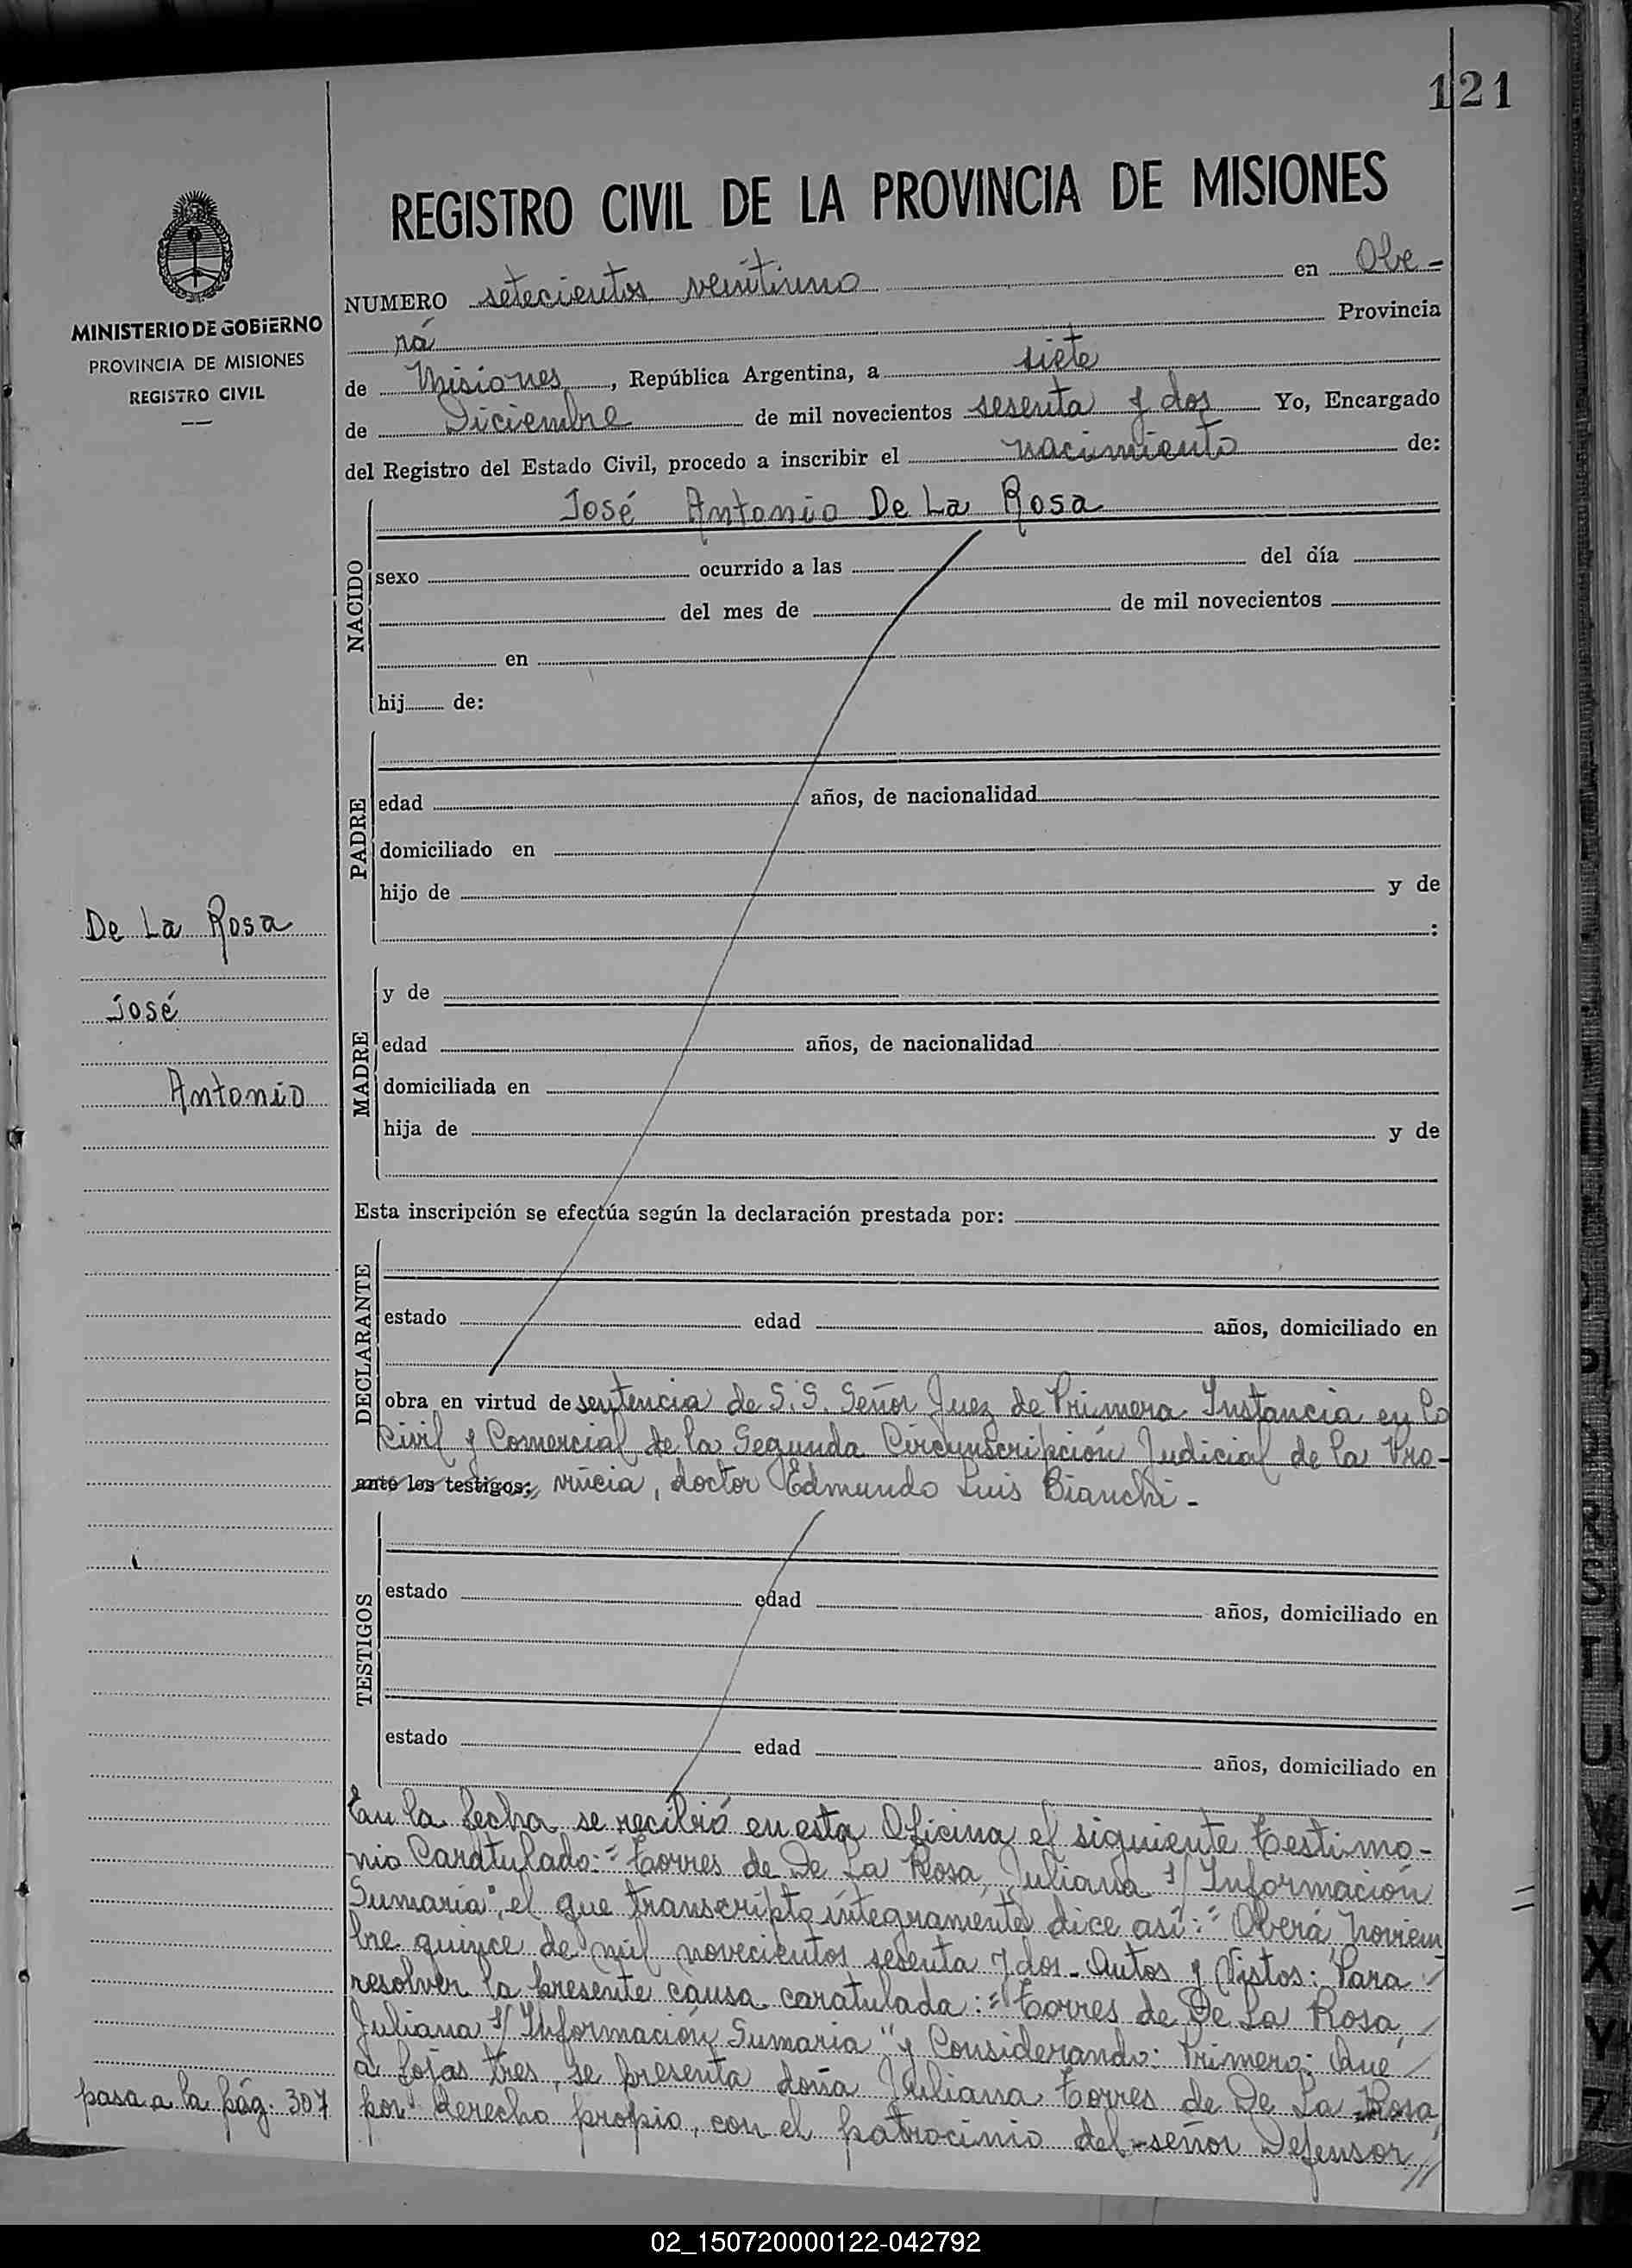 121
REGISTRO CIVIL DE LA PROVINCIA DE MISIONES
MINISTERIO DE GOBIERNO
PROVINCIA DE MISIONES
REGISTRO CIVIL
NUMERO setecientos veintiuno en Obe-
rá Provincia
de Misiones, República Argentina, a siete
de Diciembre de mil novecientos sesenta y dos Yo, Encargado
del Registro del Estado Civil, procedo a inscribir el nacimiento de:
José Antonio De La Rosa
NACIDO
sexo ocurrido a las del día
del mes de de mil novecientos
en
hij de:
PADRE
edad años, de nacionalidad
domiciliado en
hijo de y de
:
De La Rosa
José
Antonio
MADRE
y de
edad años, de nacionalidad
domiciliada en
hija de y de
Esta inscripción se efectúa según la declaración prestada por:
DECLARANTE
estado edad años, domiciliado en
obra en virtud de sentencia de S.S. Señor Juez de Primera Instancia en lo
Civil y Comercial de la Segunda Circunscripción Judicial de la Pro-
ante los testigos: vincia, doctor Edmundo Luis Bianchi-
TESTIGOS
estado edad años, domiciliado en
estado edad años, domiciliado en
En la fecha se recibió en esta Oficina el siguiente testimo-
nio Caratulado:="Torres de De La Rosa, Juliana s/ Información
Sumaria", el que transcripto íntegramente dice así:="Oberá, Noviem
bre quince de mil novecientos sesenta y dos.- Autos y Vistos: Para
resolver la presente causa caratulada:="Torres de De La Rosa,
Juliana s/ Información Sumaria" y Considerando: Primero: Que
a fojas tres, se presenta doña Juliana Torres de De La Rosa,
por derecho propio, con el patrocinio del señor Defensor//
pasa a la pág. 307
02_150720000122-042792